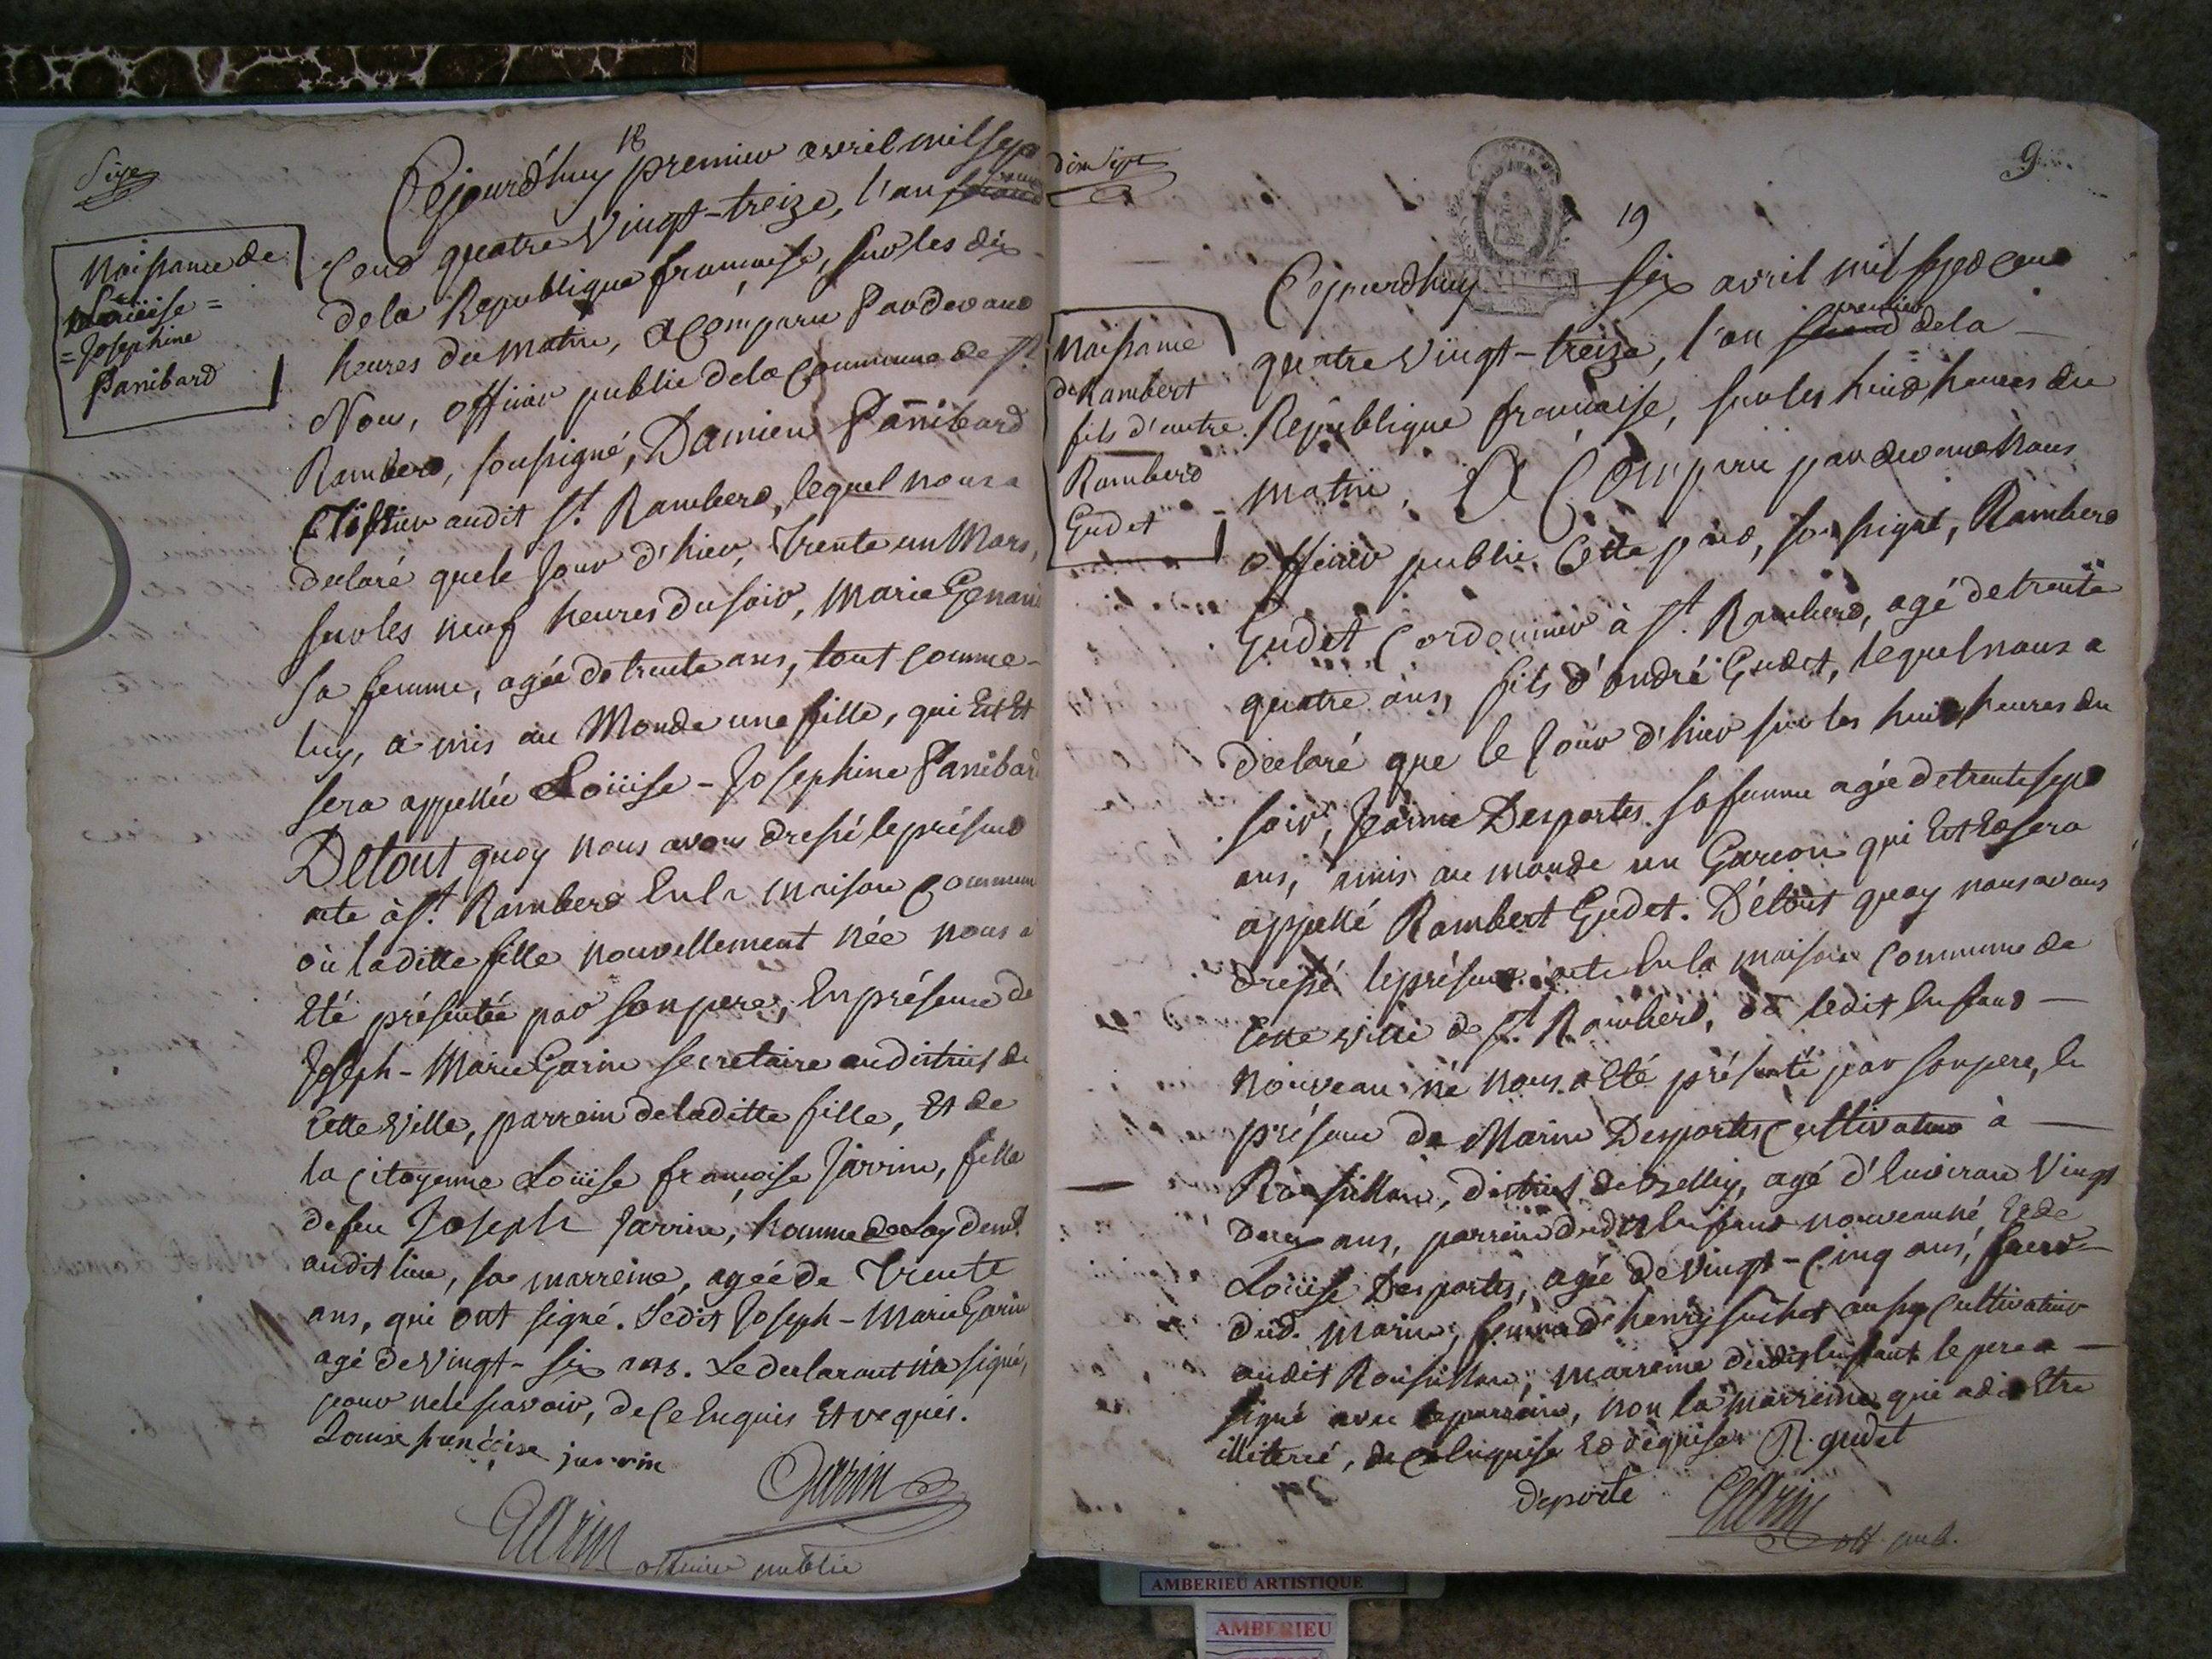 18
Cejourd'huy premier avril mil sept
Cend quatre Vingt-treize, l'an second premier
de la Republique francaise, sur les dix
heures du matin, a Comparu Pardevand
Nous, officier public de la Commune de St.
Ramberd, soussigné, Damien Panibard
audit St. Ramberd, lequel nous a
declaré que le Jour d'hier, trente un Mars,
sur les neuf heures du soir, Marie
sa femme, agée de trente ans, tout comme
luy, a mis au Monde une fille, qui Est Et
sera appellée Loüise-Josephine Panibard
De tout quoy nous avons dressé le présend
acte à St. Ramberd En la maison Commune
où laditte fille nouvellement née nous a
Eté présentée par son pere, En présence de
Joseph-Marie Garin secretaire au district de
Cette Ville, parrein de laditte fille, Et de
la Citoyenne Loüise françoise Jarrin, fille
de feu Joseph Jarrin, homme de Loy demt.
audit lieu, sa marreine, agée de Trente
ans, qui ont signé. Ledit Joseph-Marie Garin
agé de Vingt-six ans. Le declarant n'a signé,
pour ne le savoir, de Ce Enquis Et requis.
Louise françoise jarrin
Garin
Garin officier public
Naissance de
Loüise =
= Josephine
Panibard
9
19
Cejourd'huy six avril mil sept cend
quatre Vingt-treize, l'an second premier de la
République francaise, sur les huid heures du
matin, A Comparu pardevand Nous
officier public Cette pard, soussigné, Ramberd
Gudet Cordonnier à St. Ramberd, agé de trente
quatre ans, fils d'André Gudet, lequel nous a
declaré que le Jour d'hier sur les huid heures du
soir, Jeanne Desportes sa femme agée de trente sept
ans, a mis au monde un Garcon qui Est Et sera
appellé Rambert Gudet. De tout quoy nous avons
dressé le présend acte En la maison Commune de
Cette Ville de St. Ramberd, où ledit Enfand
nouveau né nous a Eté présenté par son pere, En
présence de Marin Desportes Cultivateur à
Roussillon, district de Belley, agé d'Environ Vingt
Deux ans, parrein dudit Enfand nouveau né, Et de
Loüise Desportes, agée de Vingt-Cinq ans, sœur
dud. Marin, femme d'henry suchet aussy Cultivateur
audit Roussillon, marreine dudit Enfant. le pere a
signé avec le parrein, non la marreine qui a dit Etre
illiterée, de Ce Enquise Et requise. R. gudet
deporte Garin
off. pub.
Naissance
de Rambert
fils d'autre
Ramberd
Gudet
AMBERIEU ARTISTIQUE
AMBERIEU